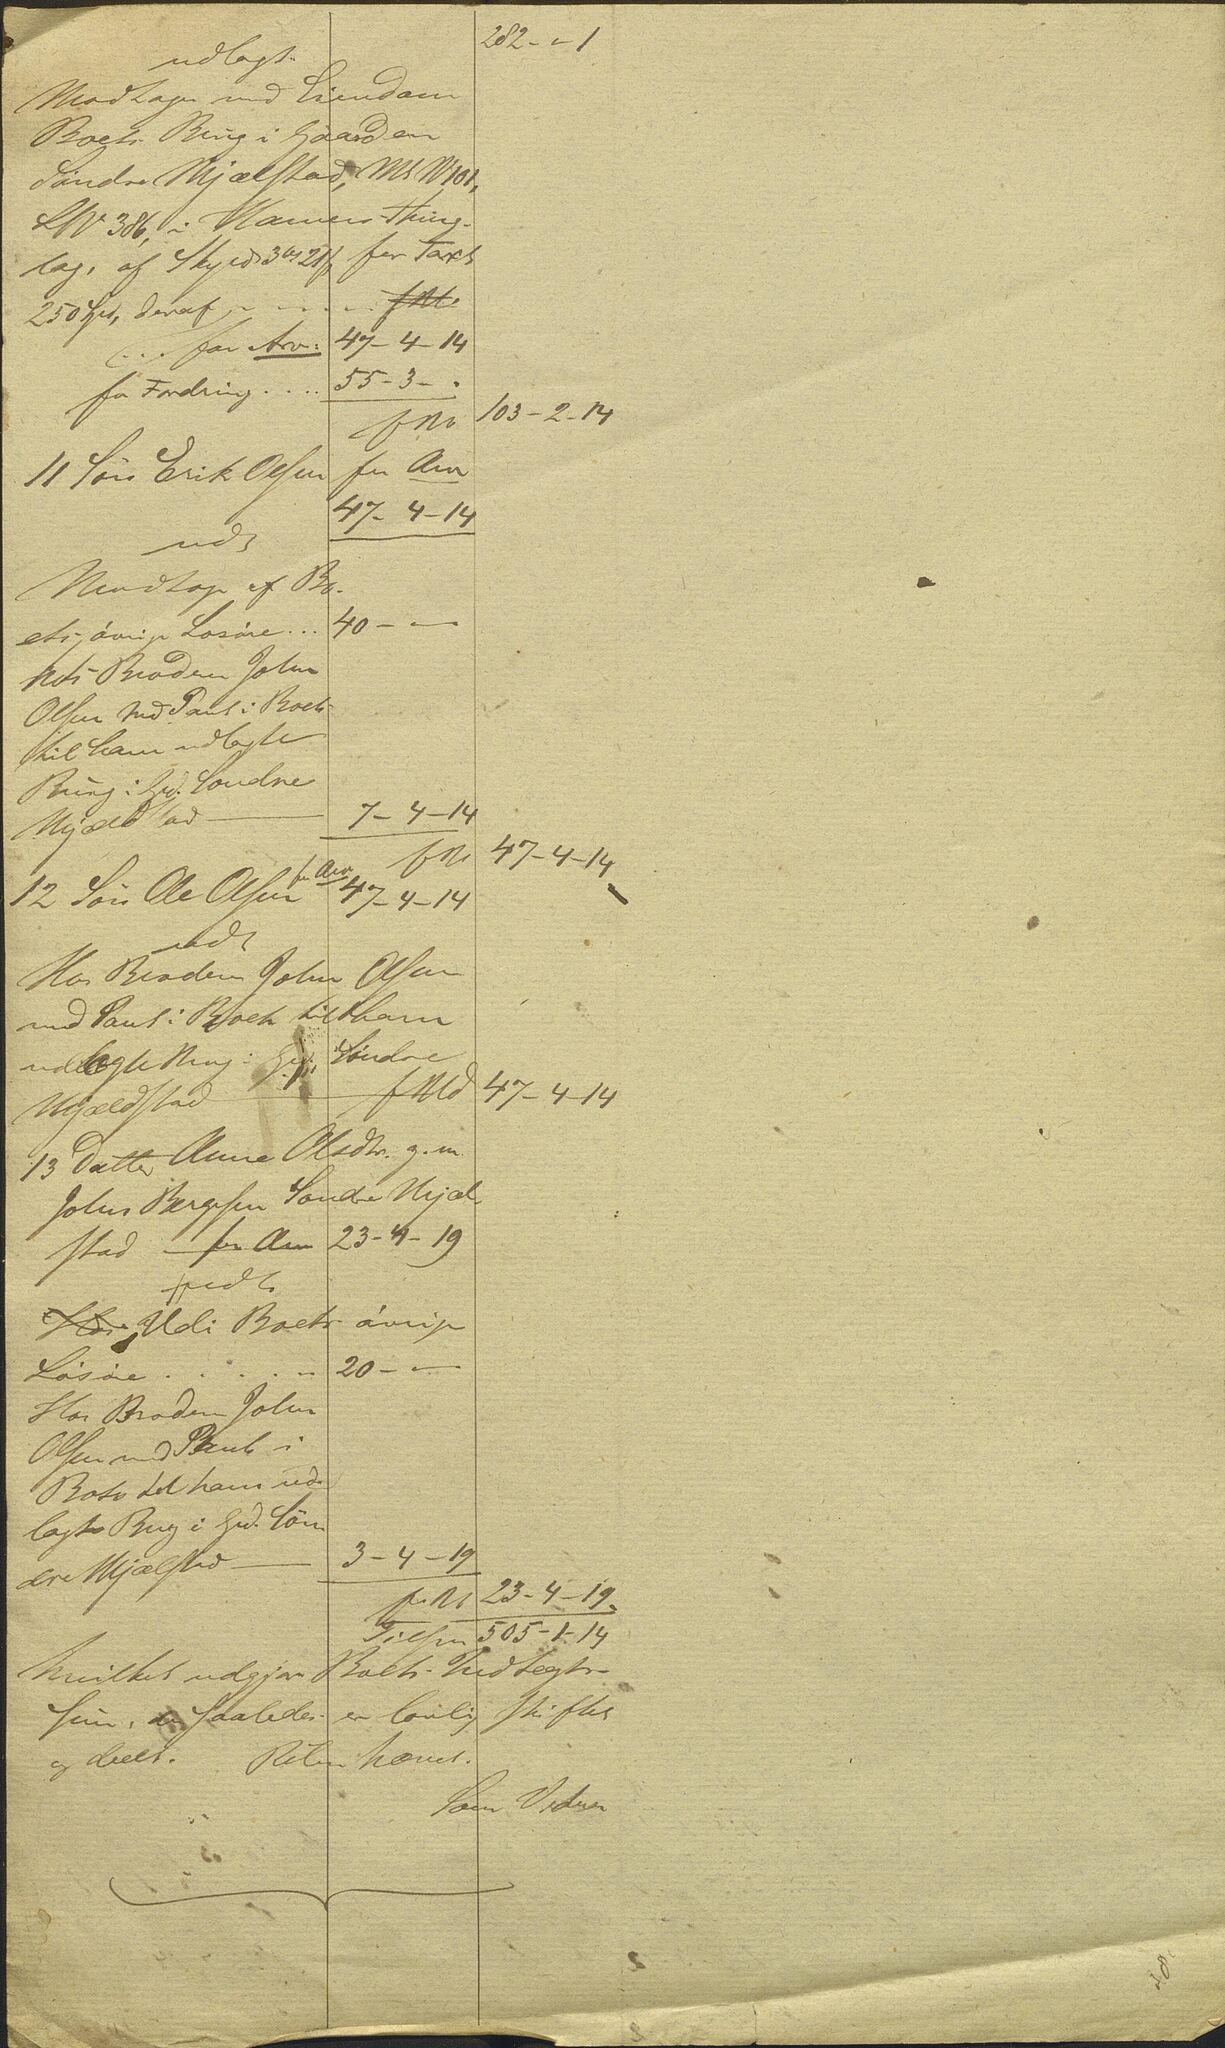 282 - " - 1
udlagt
Modtager med Eiendom
Boets Brug i Gaarden
Søndre Mjælstad, Mt N 101,
LN 386, i Hameis Thing-
lag, af Skyld 3 21 ß, for Taxt
250 Spd, deraf
for Arv: 47 - 4 - 14
for Fordring .... 55 - 3 - "
103 - 2 - 14
11 Søn Erik Olsen for Arv
47 - 4 - 14
udl
Modtager af Bo-
ets øvrige Løsøre ... 40 - " -
hos Broderen John
Olsen med Pant i Boets
til ham udlagte
Brug i Grd. Søndre
Mjældstad 7 - 4 - 14
47 - 4 - 14
12 Søn Ole Olsen for Arv 47 - 4 - 14
udl
Hos Broderen John Olsen
med Pant i Boets til ham
udlagte Brug i Grd. Søndre
Mjældstad 47 - 4 - 14
13 Datter Anne Olsdtr. g. m.
John Bergesen Søndre Mjæl-
stad for Arv 23 - 4 - 19
udl
Hos Udi Boets øvrige
Løsøre . . . . . 20 - " -
Hos Broderen John
Olsen med Pant i
Boets til ham ud-
lagte Brug i Grd. Søn-
dre Mjælstad 3 - 4 - 19
23 - 4 - 19
Tilsm 505 - 1 - 14
hvilket udgjør Boets Indtægts-
Sum, der saaledes er lovlig skiftet
og deelt. Retten hævet.
Som Vidner